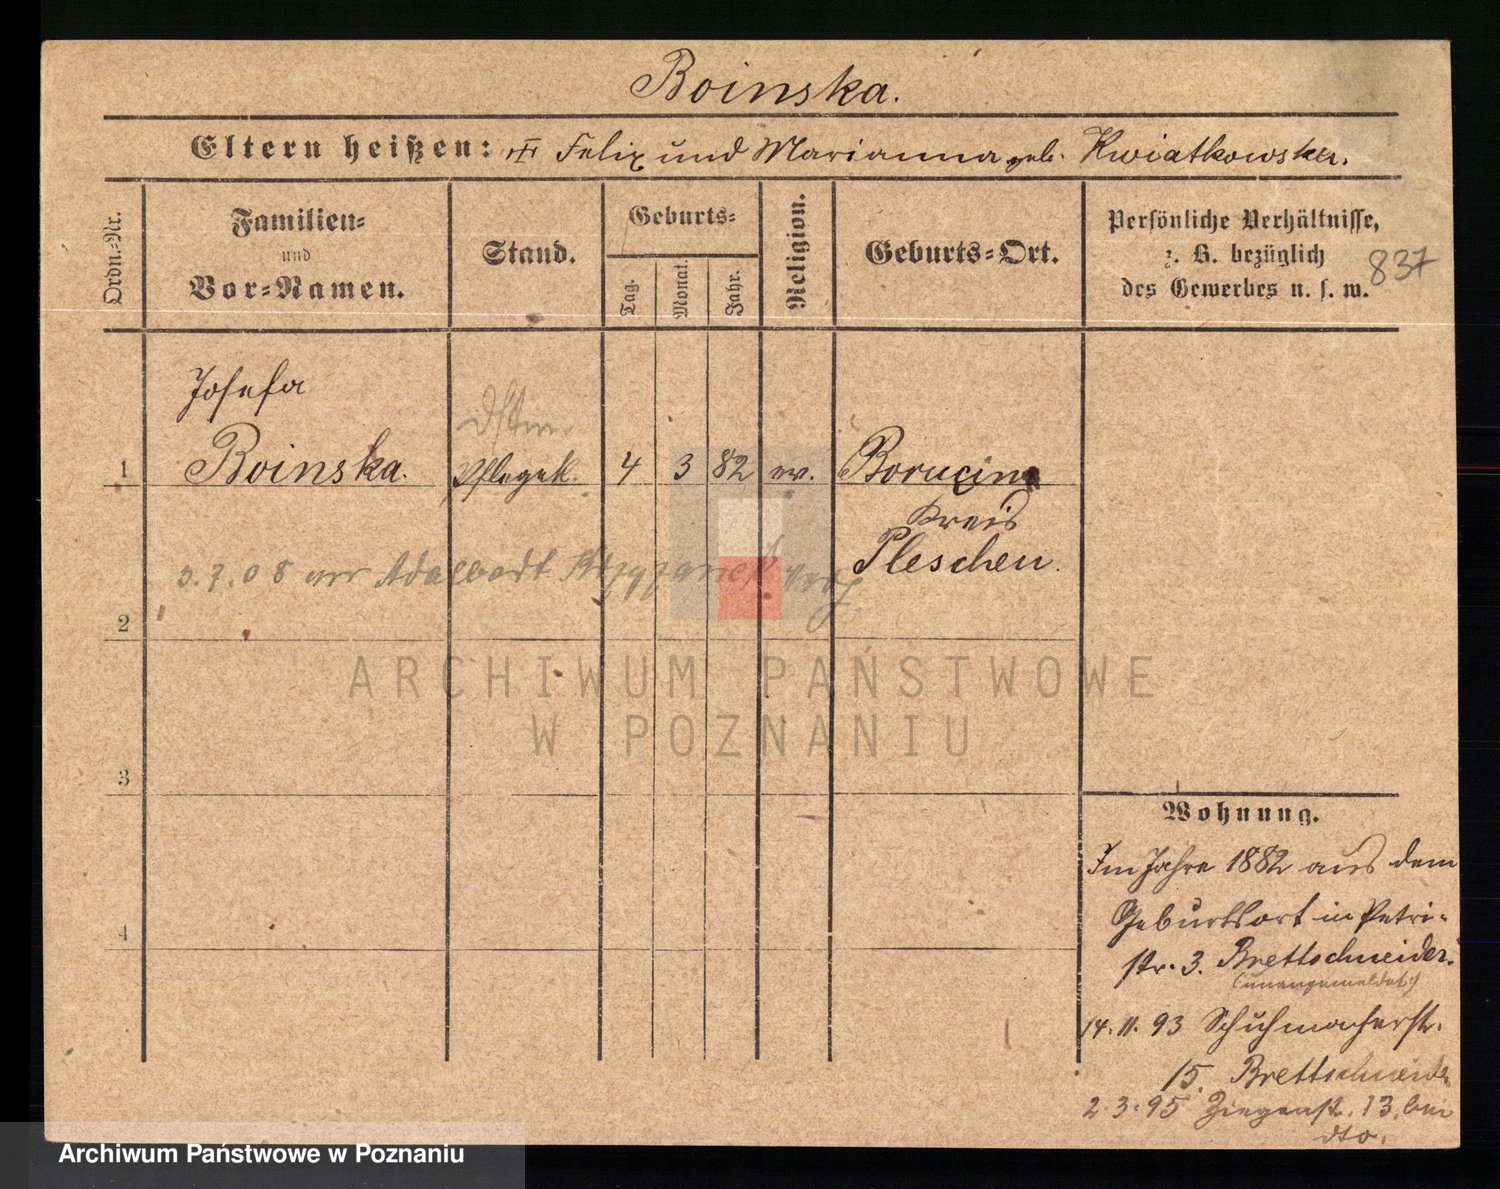 Boinska.
Eltern heißen: Felix und Marianna geb. Kwiatkowska.
Ordn.-Nr.
Familien-
und
Vor-Namen.
Stand.
Geburts-
Tag.
Monat.
Jahr.
Religion.
Geburts-Ort.
Persönliche Verhältnisse,
z. B. bezüglich
des Gewerbes u. s. w.
837
Josefa
1 Boinska. Pflegek. 4 3 82 Borucin
Kreis
Pleschen.
3.7.08 Adalbert
2
ARCHIWUM PAŃSTWOWE
W POZNANIU
3
Wohnung.
Im Jahre 1882 aus dem
4 Geburtsort in Petri-
str. 3. Brettschneider.
(unangemeldet)
14.11.93 Schuhmacherstr.
15. Brettschneider
2.3.95 Ziegenstr. 13. bei
dto.
Archiwum Państwowe w Poznaniu